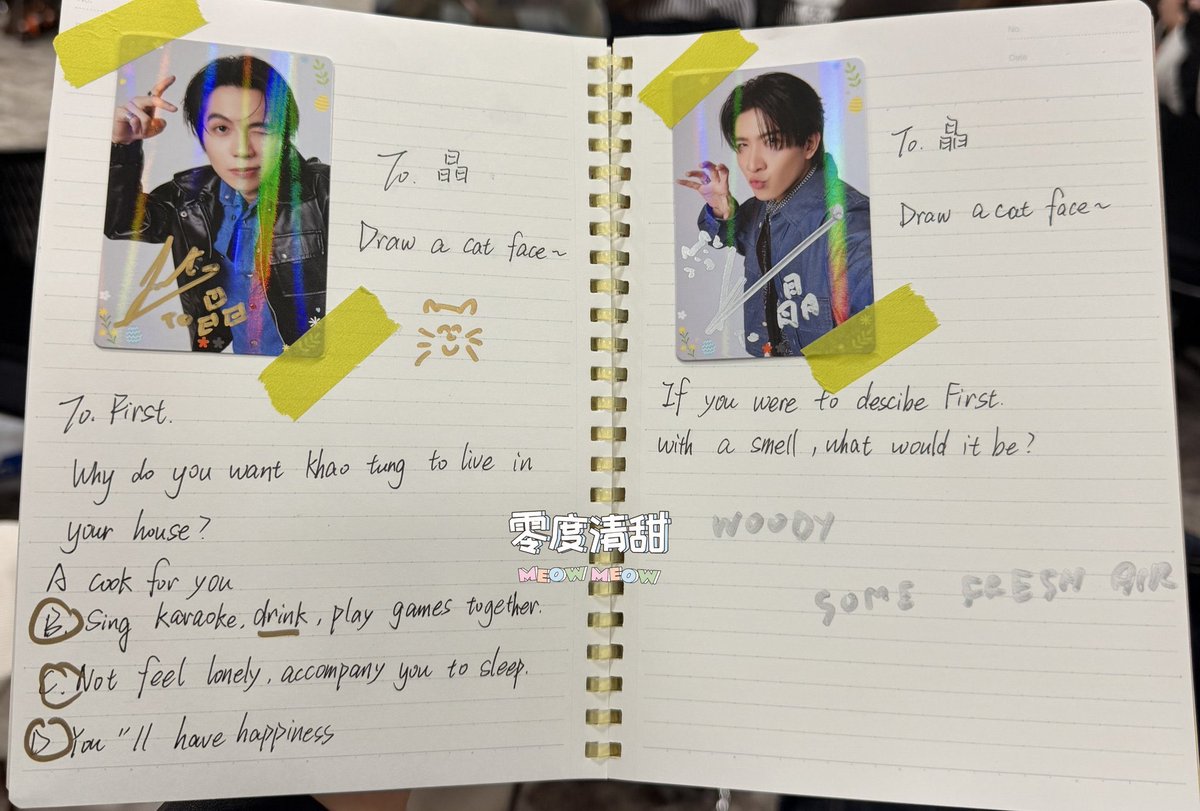 To. 晶
Draw a cat face~
TO 晶
To. First.
Why do you want khao tung to live in
your house?
A cook for you
B. Sing karaoke, drink, play games together.
C. Not feel lonely, accompany you to sleep.
D You "ll have happiness
零度清甜
MEOW MEOW
No
Date
To. 晶
Draw a cat face~
晶
If you were to descibe First.
with a smell, what would it be?
WOODY
SOME FRESH AIR